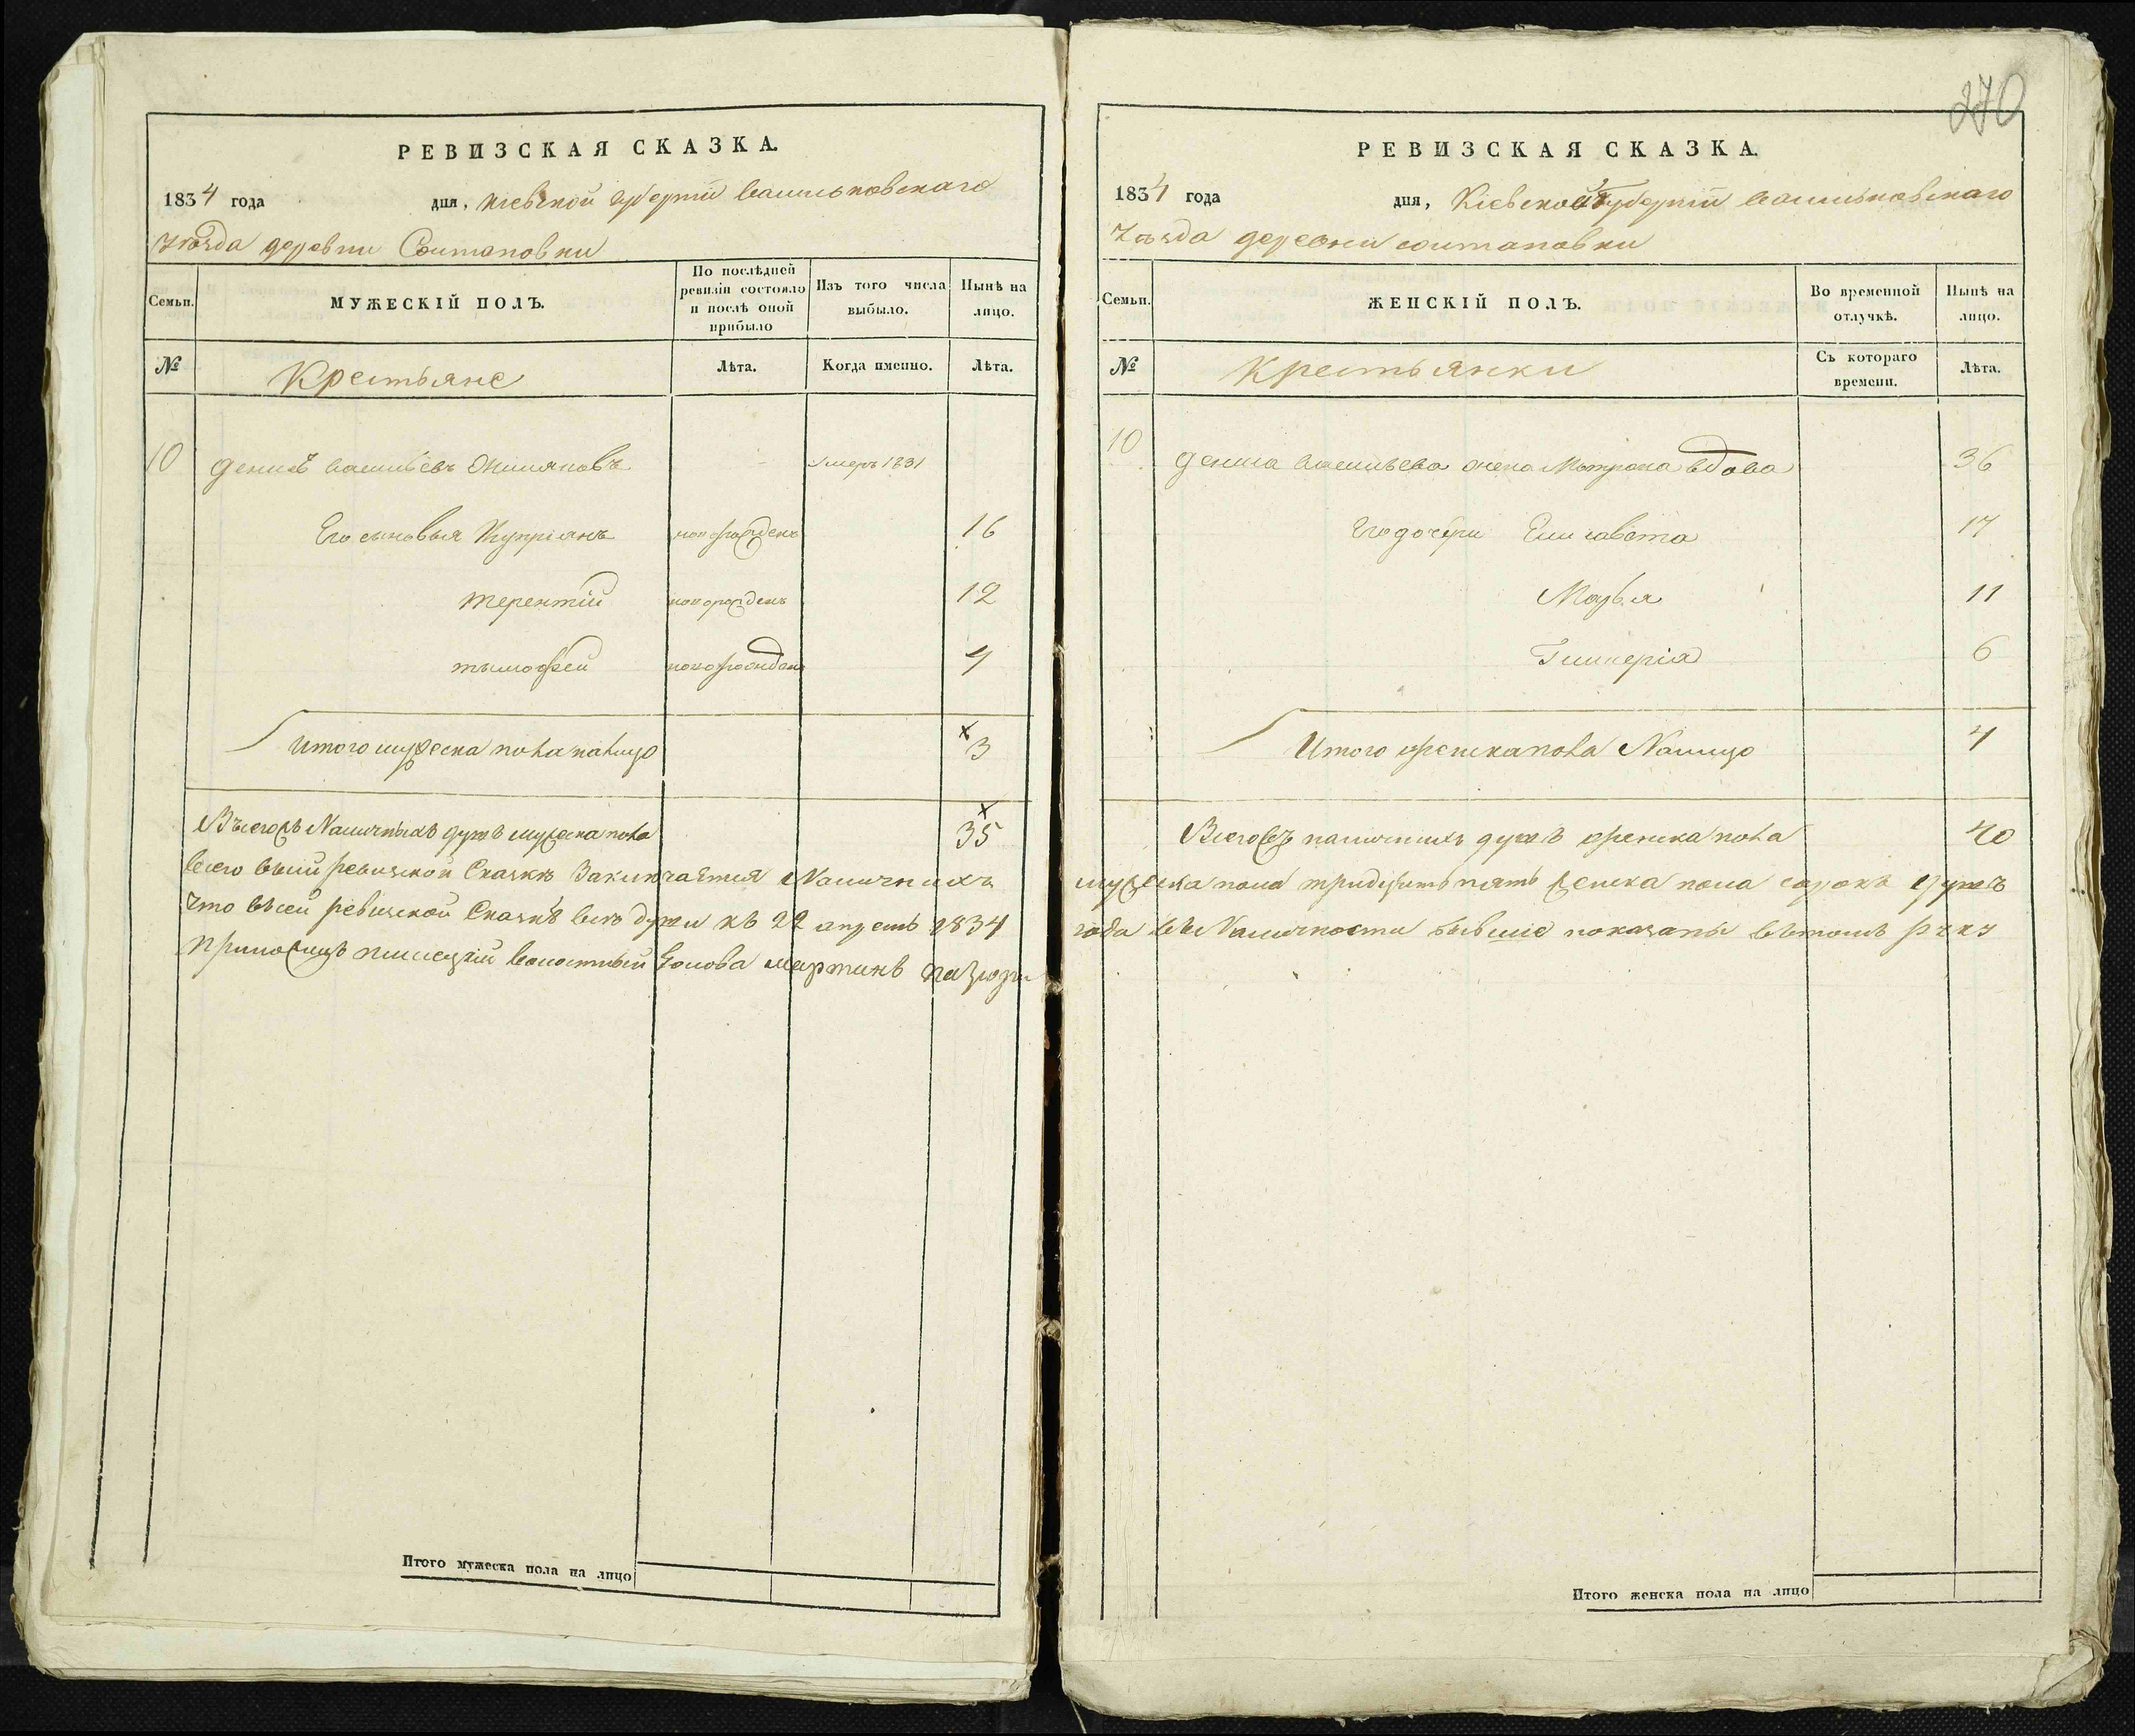 РЕВИЗСКАЯ СКАЗКА.
1834 года дня, Кіевской Губерніи Васильковскаго
Уѣзда деревни Солтановки
Семьи.
МУЖЕСКІЙ ПОЛЪ.
По послѣдней ревизіи состояло и послѣ оной прибыло
Изъ того числа выбыло.
Нынѣ на лицо.
№
Крестьяне
Лѣта.
Когда именно.
Лѣта.
10 Денисъ Васильевъ умеръ 1831
Его сыновья Купріянъ новорожденъ 16
Терентій новорожденъ 12
Тымофей новорожденъ 4
Итого мужеска пола налицо 3
Всегожъ Наличныхъ душъ мужеска пола 35
Всего въсій ревизской Сказкѣ Заключается Наличныхъ
Что въсей ревизской Сказкѣ всѣ души къ 22 апрель 1834
Волостный Голова Мартинъ
Итого мужеска пола на лицо
270
РЕВИЗСКАЯ СКАЗКА.
1834 года дня, Кіевской Губерніи Васильковскаго
Уѣзда деревни Солтановки
Семьи.
ЖЕНСКІЙ ПОЛЪ.
Во временной отлучкѣ.
Нынѣ на лицо.
№
Крестьянки
Съ котораго времени.
Лѣта.
10 Дениса Васильева жена Матрона вдова 36
Его дочери Елисавета 17
Марья 11
Гликерія 6
Итого женска пола Налицо 4
Всегожъ наличныхъ душъ женска пола 40
мужеска пола тридцать пять женска пола сорокъ душъ
года въ Наличности бывшіе показаны вътомъ
Итого женска пола на лицо